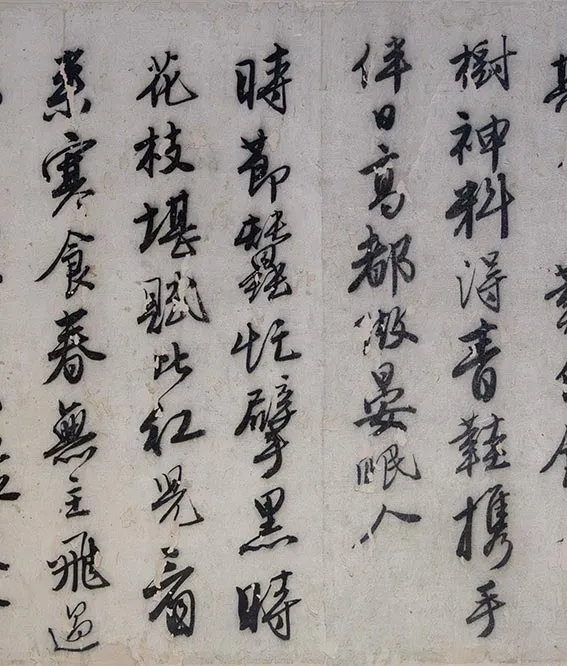 樹神料得青鞋攜手
伴日高都做晏眠人
時節蠶忙擘黑時
花枝堪賦比紅兒看
來寒食春無主飛過